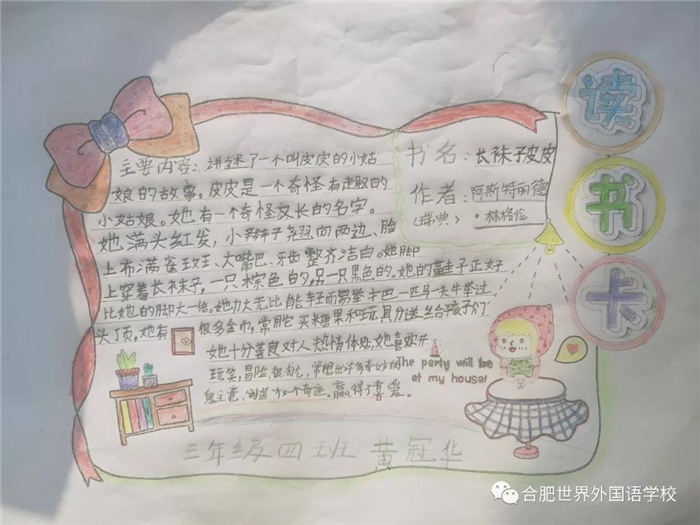 读
书
卡
书名:长袜子皮皮
作者:阿斯特丽德
(瑞典)·林格伦
主要内容:讲述了一个叫皮皮的小姑
娘的故事。皮皮是一个奇怪有趣的
小姑娘。她有一个奇怪又长的名字。
她满头红发,小辫子翘向两边、脸
上布满雀斑、大嘴巴、牙齿整齐洁白。她脚
上穿着长袜子,一只棕色的,另一只黑色的。她的鞋子正好
比她的脚大一倍。她力大无比能轻而易举把一匹马头牛举过
头顶,她有很多金币,常用它买糖果和玩具分送给孩子们
她十分善良对人热情体贴,她喜欢开
玩笑,冒险,
赢得了喜爱。
The party will be
at my house!
三年级四班 黄冠华
合肥世界外国语学校